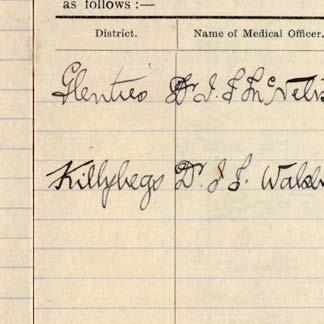 as follows :—
District. Name of Medical Officer.
Glenties Dr. J. F. McNel
Killybegs Dr. J. F. Wals